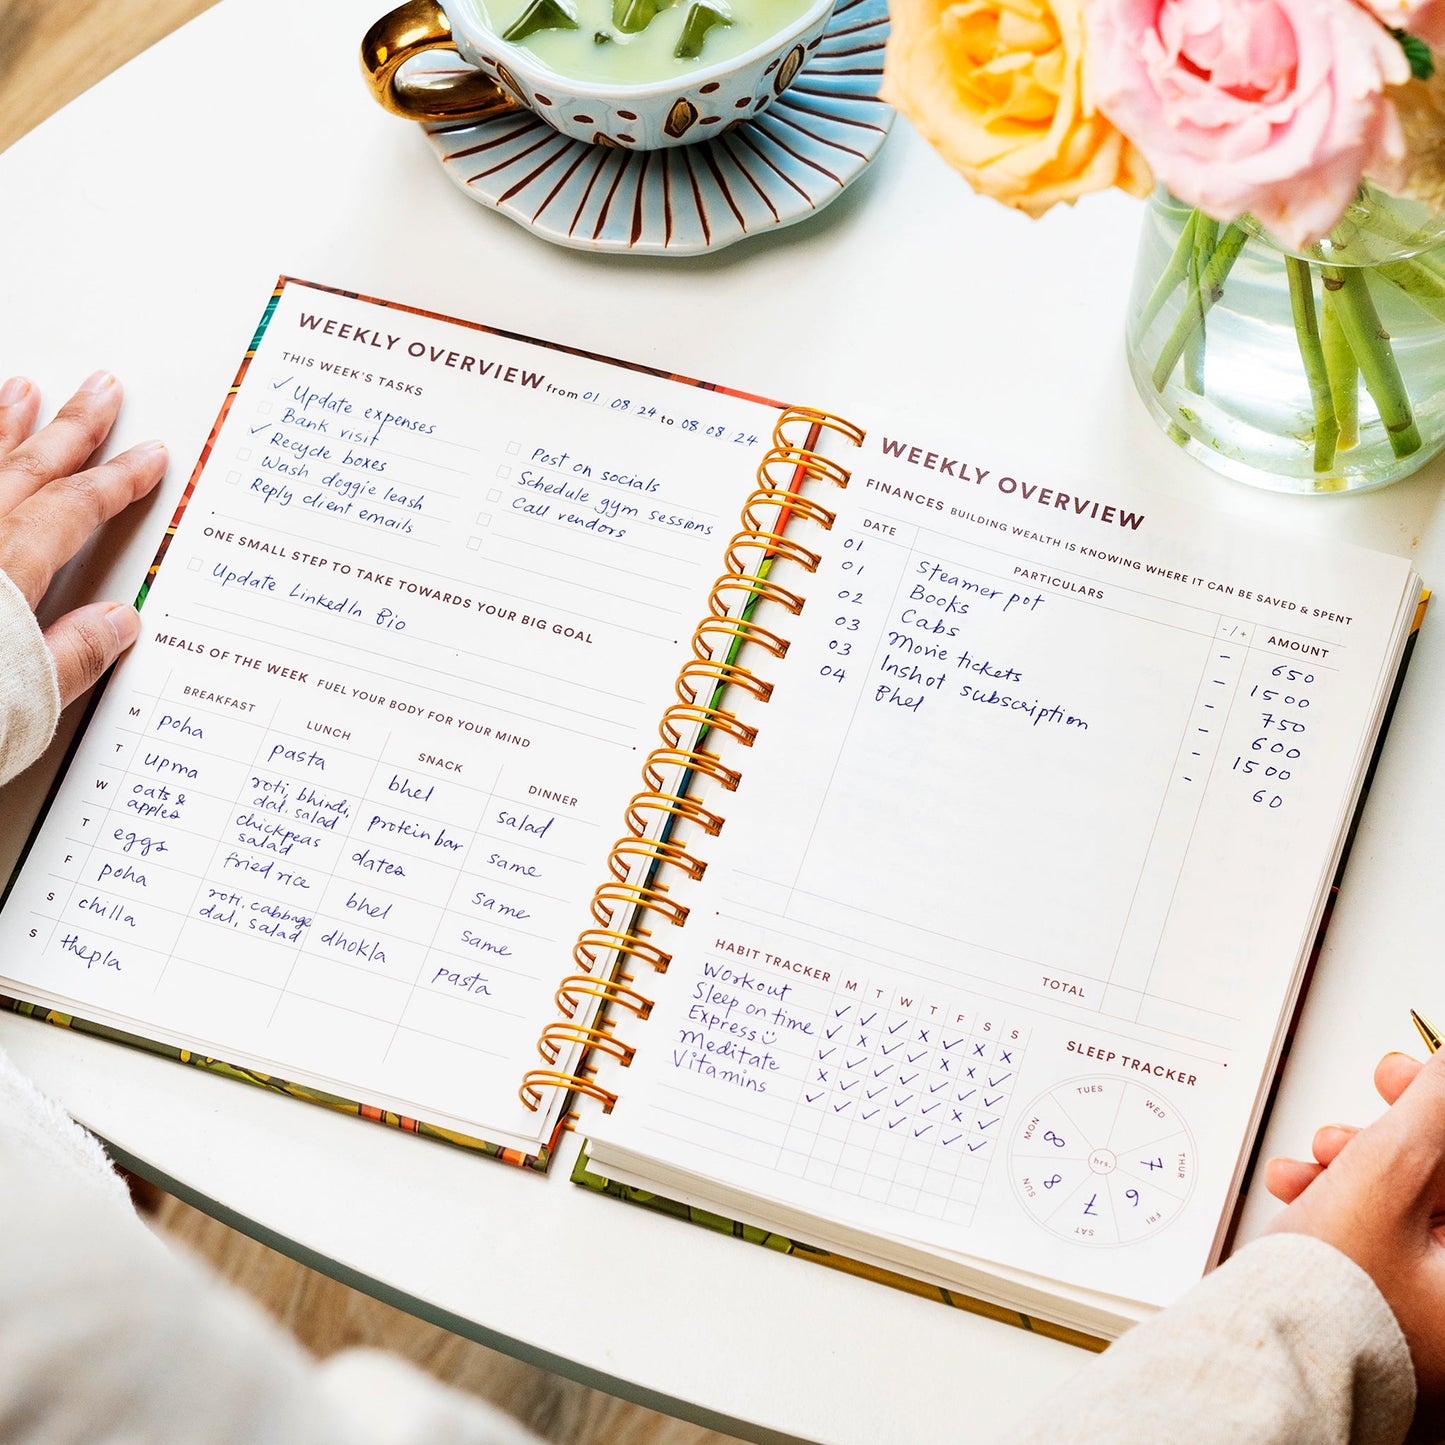 WEEKLY OVERVIEW from 01/08/24 to 08/08/24
THIS WEEK'S TASKS
✓ Update expenses
Bank visit
✓ Recycle boxes
Wash doggie leash
Reply client emails
Post on socials
Schedule gym sessions
Call vendors
ONE SMALL STEP TO TAKE TOWARDS YOUR BIG GOAL
Update LinkedIn Bio
MEALS OF THE WEEK FUEL YOUR BODY FOR YOUR MIND
BREAKFAST LUNCH SNACK DINNER
M poha pasta bhel salad
T upma roti, bhindi, dal, salad protein bar same
W oats & apples chickpeas salad dates same
T eggs fried rice bhel same
F poha roti, cabbage dal, salad dhokla pasta
S chilla
S thepla
WEEKLY OVERVIEW
FINANCES BUILDING WEALTH IS KNOWING WHERE IT CAN BE SAVED & SPENT
DATE PARTICULARS -/+ AMOUNT
01 Steamer pot - 650
01 Books - 1500
02 Cabs - 750
03 Movie tickets - 600
03 Inshot subscription - 1500
04 Bhel - 60
TOTAL
HABIT TRACKER M T W T F S S
Workout ✓ ✓ ✓ x ✓ x x
Sleep on time ✓ x ✓ ✓ x x ✓
Express ✓ ✓ ✓ ✓ ✓ ✓ ✓
Meditate x ✓ ✓ ✓ ✓ x ✓
Vitamins ✓ ✓ ✓ ✓ ✓ ✓ ✓
SLEEP TRACKER
hrs.
MON 8
TUES
WED
THUR 7
FRI 6
SAT 7
SUN 8